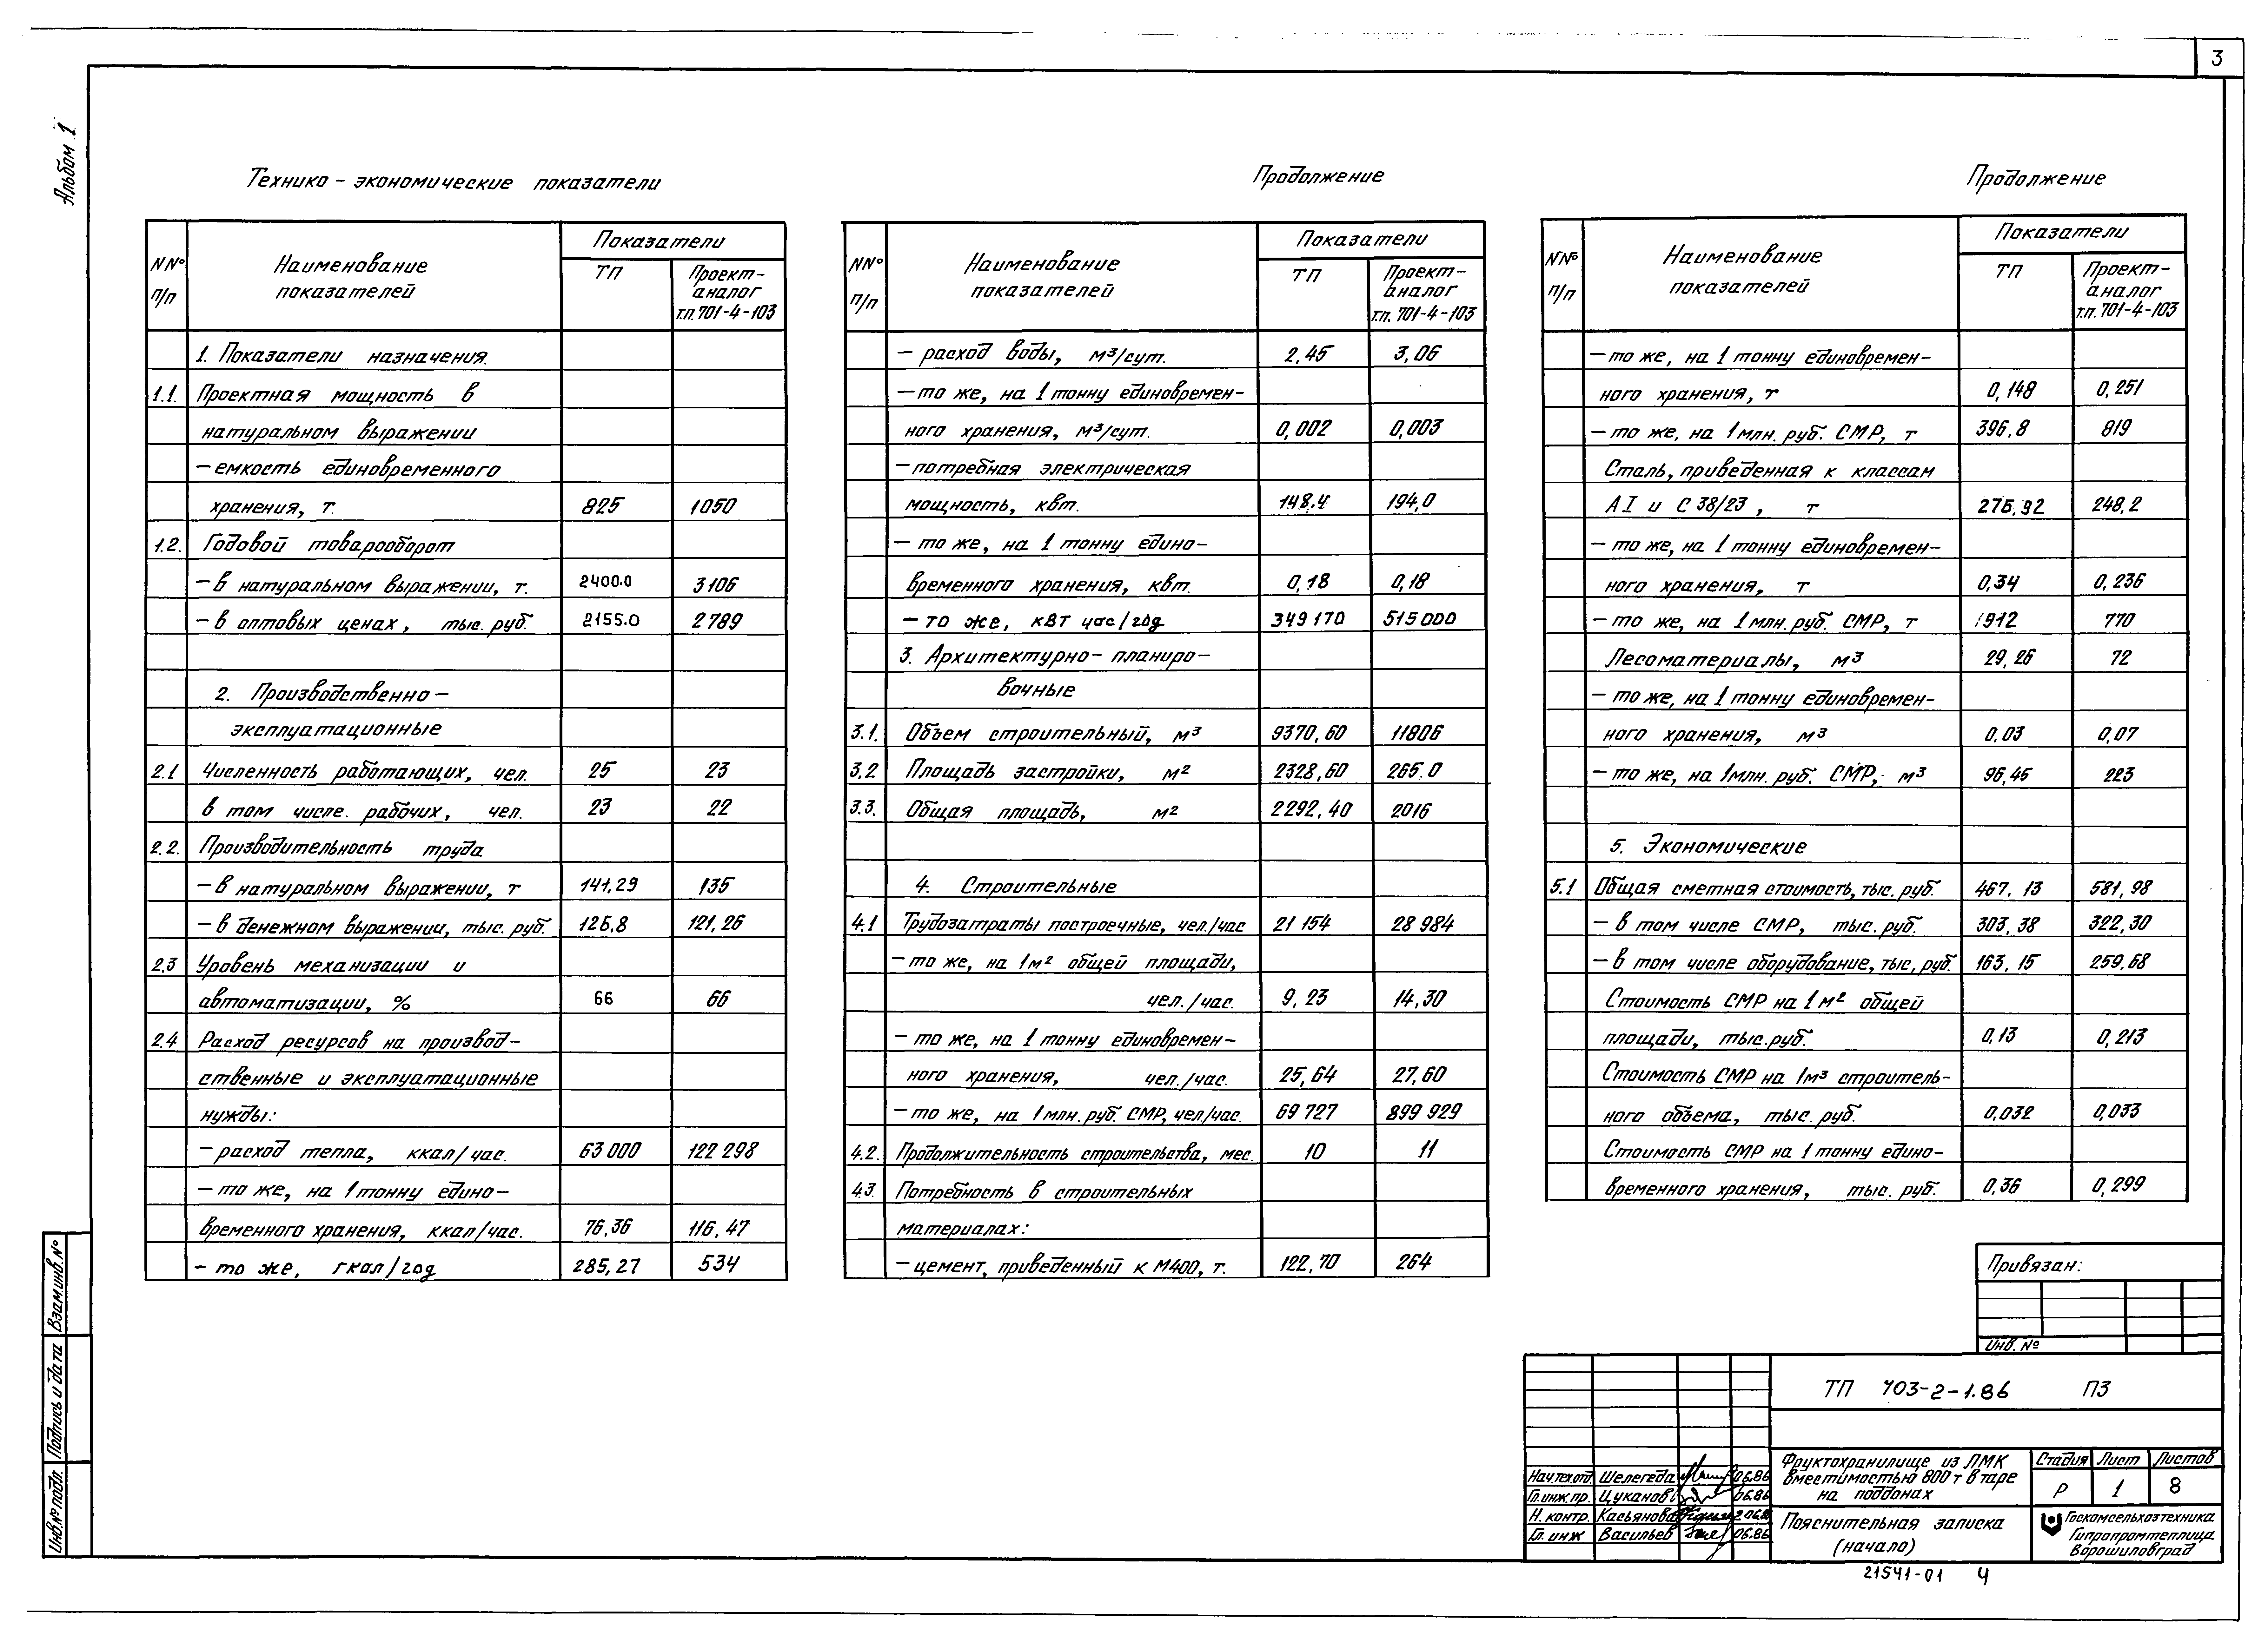 3
Альбом 1
Технико-экономические показатели
NNº п/п | Наименование показателей | Показатели
ТП | Проект-аналог т.п. 701-4-103
1. Показатели назначения.
1.1. Проектная мощность в
натуральном выражении
- емкость единовременного
хранения, т. 825 1050
1.2. Годовой товарооборот
- в натуральном выражении, т. 2400.0 3106
- в оптовых ценах, тыс. руб. 2155.0 2789
2. Производственно-
эксплуатационные
2.1 Численность работающих, чел. 25 23
в том числе. рабочих, чел. 23 22
2.2. Производительность труда
- в натуральном выражении, т 141,29 135
- в денежном выражении, тыс. руб. 126,8 121,26
2.3 Уровень механизации и
автоматизации, % 66 66
2.4 Расход ресурсов на производ-
ственные и эксплуатационные
нужды:
- расход тепла, ккал/час. 63 000 122 298
- то же, на 1 тонну едино-
временного хранения, ккал/час. 76,36 116,47
- то же, гкал/год 285,27 534
Продолжение
NNº п/п | Наименование показателей | Показатели
ТП | Проект-аналог т.п. 701-4-103
- расход воды, м³/сут. 2,45 3,06
- то же, на 1 тонну единовремен-
ного хранения, м³/сут. 0,002 0,003
- потребная электрическая
мощность, квт. 148.4 194,0
- то же, на 1 тонну едино-
временного хранения, квт. 0,18 0,18
- то же, квт час/год 349 170 515 000
3. Архитектурно-планиро-
вочные
3.1. Объем строительный, м³ 9370,60 11806
3.2 Площадь застройки, м² 2328,60 265.0
3.3. Общая площадь, м² 2292,40 2016
4. Строительные
4.1 Трудозатраты построечные, чел./час 21 154 28 984
- то же, на 1м² общей площади,
чел./час. 9,23 14,30
- то же, на 1 тонну единовремен-
ного хранения, чел./час. 25,64 27,60
- то же, на 1 млн. руб. СМР, чел/час. 69 727 899 929
4.2. Продолжительность строительства, мес. 10 11
4.3. Потребность в строительных
материалах:
- цемент, приведенный к М400, т. 122,70 264
Продолжение
NNº п/п | Наименование показателей | Показатели
ТП | Проект-аналог т.п. 701-4-103
- то же, на 1 тонну единовремен-
ного хранения, т 0,148 0,251
- то же, на 1 млн. руб. СМР, т 396,8 819
Сталь, приведенная к классам
АI и С 38/23, т 276,92 248,2
- то же, на 1 тонну единовремен-
ного хранения, т 0,34 0,236
- то же, на 1 млн. руб. СМР, т 912 770
Лесоматериалы, м³ 29,26 72
- то же, на 1 тонну единовремен-
ного хранения, м³ 0,03 0,07
- то же, на 1 млн. руб. СМР, м³ 96,45 223
5. Экономические
5.1 Общая сметная стоимость, тыс. руб. 467,13 581,98
- в том числе СМР, тыс. руб. 303,38 322,30
- в том числе оборудование, тыс, руб. 163,15 259,68
Стоимость СМР на 1 м² общей
площади, тыс. руб. 0,13 0,213
Стоимость СМР на 1м³ строитель-
ного объема, тыс. руб. 0,032 0,033
Стоимость СМР на 1 тонну едино-
временного хранения, тыс. руб. 0,36 0,299
Привязан:
Инв. Nº
ТП 703-2-1.86 ПЗ
Фруктохранилище из ЛМК
вместимостью 800 т в таре
на поддонах
Стадия Лист Листов
Р 1 8
Пояснительная записка
(начало)
Госкомсельхозтехника
Гипропромтеплица
Ворошиловград
Нач.тех.отд. Шелегеда 06.86
Гл.инж.пр. Цуканов 06.86
Н. контр. Касьянова
Гл. инж Васильев 06.86
21541-01 4
Взам.инв.Nº
Подпись и дата
Инв.Nºподл.